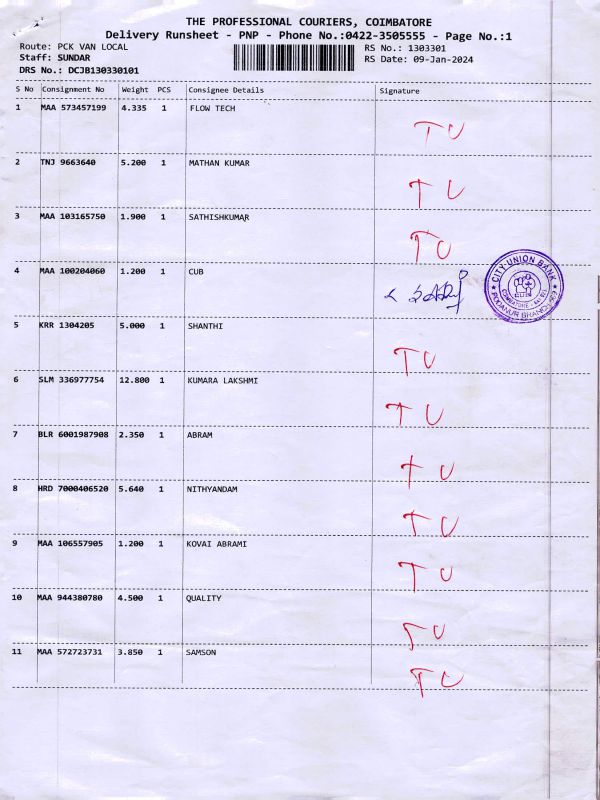 THE PROFESSIONAL COURIERS, COIMBATORE
Delivery Runsheet - PNP - Phone No.:0422-3505555 - Page No.:1
Route: PCK VAN LOCAL RS No.: 1303301
Staff: SUNDAR RS Date: 09-Jan-2024
DRS No.: DCJB130330101
S No Consignment No Weight PCS Consignee Details Signature
1 MAA 573457199 4.335 1 FLOW TECH
TU
2 TNJ 9663640 5.200 1 MATHAN KUMAR
TU
3 MAA 103165750 1.900 1 SATHISHKUMAR
TU
4 MAA 100204060 1.200 1 CUB
CITY UNION BANK
PODANUR BRANCH
5 KRR 1304205 5.000 1 SHANTHI
TU
6 SLM 336977754 12.800 1 KUMARA LAKSHMI
TU
7 BLR 6001987908 2.350 1 ABRAM
TU
8 HRD 7000406520 5.640 1 NITHYANDAM
TU
9 MAA 106557905 1.200 1 KOVAI ABRAMI
TU
10 MAA 944380780 4.500 1 QUALITY
TU
11 MAA 572723731 3.850 1 SAMSON
TU